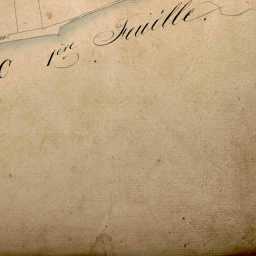 O 1ère Feuille.